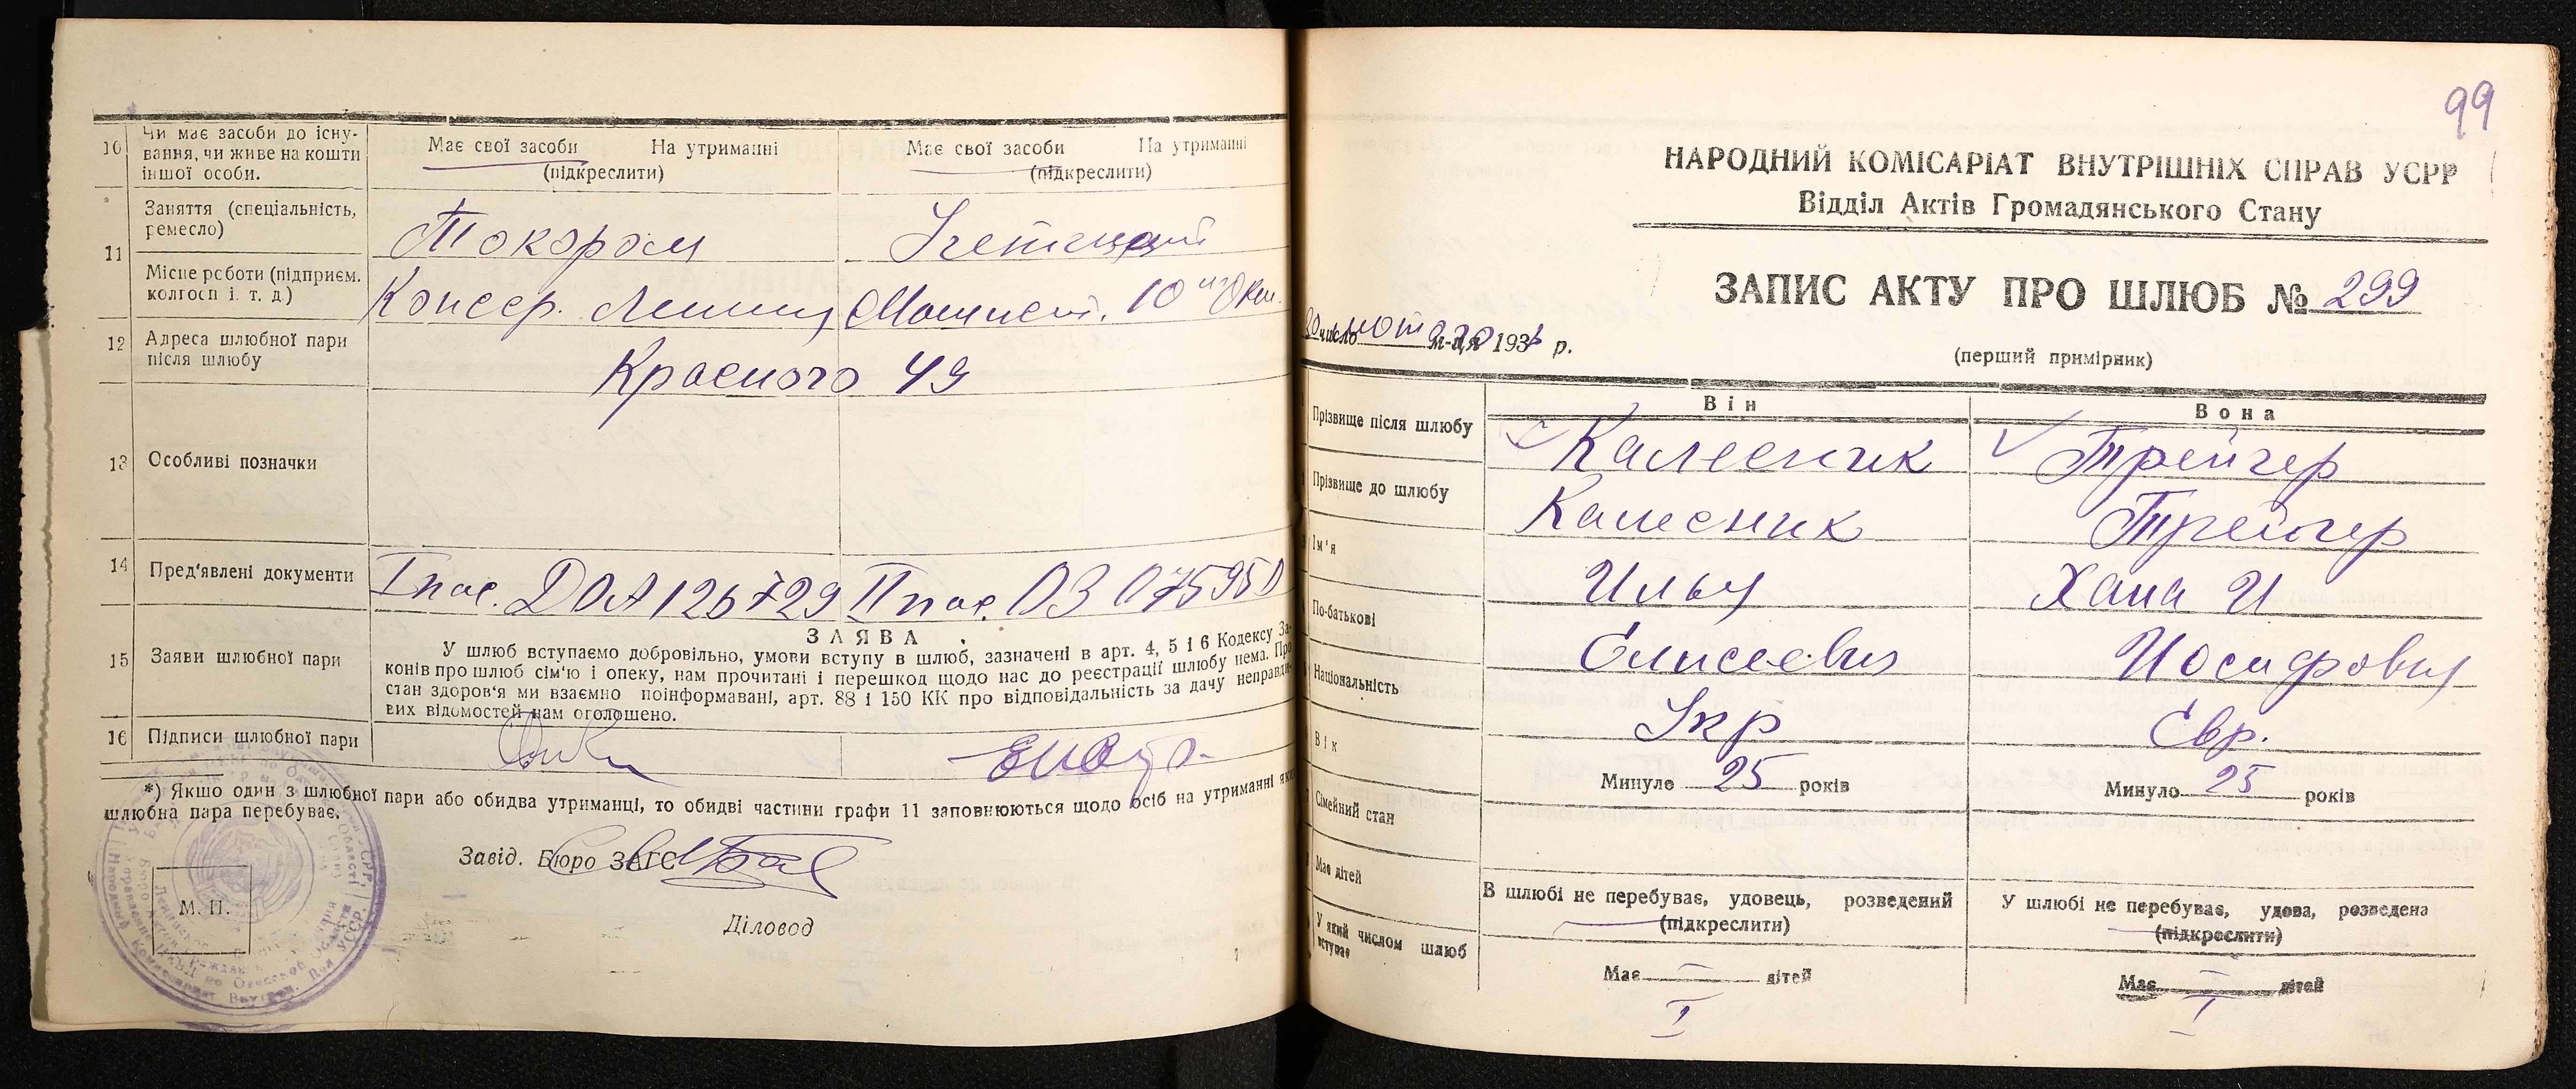 10 Чи має засоби до існування, чи живе на кошти іншої особи.
Має свої засоби На утриманні
(підкреслити)
Має свої засоби На утриманні
(підкреслити)
11 Заняття (спеціальність, ремесло)
Токором
Місце роботи (підприєм. колгосп і. т. д.)
Консер. Ленина
10
12 Адреса шлюбної пари після шлюбу
Красного 49
13 Особливі позначки
14 Пред'явлені документи
I пас. ДОА 126729 II пас. ОЗ 075950
15 Заяви шлюбної пари
ЗАЯВА
У шлюб вступаємо добровільно, умови вступу в шлюб, зазначені в арт. 4, 5 і 6 Кодексу За-
конів про шлюб сім'ю і опеку, нам прочитані і перешкод щодо нас до реєстрації шлюбу нема. Про
стан здоров'я ми взаємно поінформавані, арт. 88 і 150 КК про відповідальність за дачу неправди-
вих відомостей нам оголошено.
16 Підписи шлюбної пари
*) Якщо один з шлюбної пари або обидва утриманці, то обидві частини графи 11 заповнюються щодо осіб на утриманні яких
шлюбна пара перебуває.
Завід. Бюро ЗАГС
М. П.
Діловод
99
НАРОДНИЙ КОМІСАРІАТ ВНУТРІШНІХ СПРАВ УСРР
Відділ Актів Громадянського Стану
ЗАПИС АКТУ ПРО ШЛЮБ № 299
число м-ця 193 р.
(перший примірник)
Він Вона
Прізвище після шлюбу Калесник Трейгер
Прізвище до шлюбу Калесник Трейгер
Ім'я Илья Хана И
По-батькові Елисеевич Иосифовна
Національність Укр Евр.
Вік Минуло 25 років Минуло 25 років
Сімейний стан
В шлюбі не перебуває, удовець, розведений
(підкреслити)
У шлюбі не перебуває, удова, розведена
(підкреслити)
Має дітей
Має — дітей Має — дітей
У який числом шлюб вступає
I I